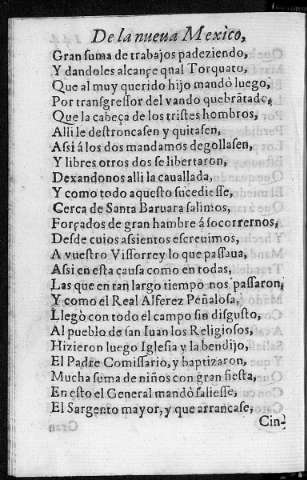 De la nueua Mexico,
Gran suma de trabajos padeziendo,
Y dandoles alcançe qual Torquato,
Que al muy querido hijo mandó luego,
Por transgressor del vando quebrãtado,
Que la cabeça de los tristes hombros,
Alli le destroncasen y quitasen,
Asi á los dos mandamos degollasen,
Y libres otros dos se libertaron,
Dexandonos alli la cauallada,
Y como todo aquesto sucediesse,
Cerca de Santa Baruara salimos,
Forçados de gran hambre á socorrernos,
Desde cuios assientos escreuimos,
A vuestro Vissorrey lo que passaua,
Asi en esta causa como en todas,
Las que en tan largo tiempo nos passaron,
Y como el Real Alferez Peñalosa,
Llegò con todo el campo sin disgusto,
Al pueblo de san Iuan los Religiosos,
Hizieron luego Iglesia y la bendijo,
El Padre Comissario, y baptizaron,
Mucha suma de niños con gran fiesta,
En esto el General mandò saliesse,
El Sargento mayor, y que arrancase,
Cin-